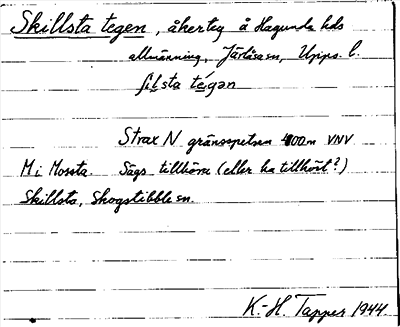 Skillsta tegen, åkerteg å Hagunda hds
allmänning, Järlåsa sn, Upps. l.
șil̲sta té̲gan
Strax N gränsspetsen 400 m VNV
M i Mossta. Sägs tillhöra (eller ha tillhört?)
Skillsta, Skogstibble sn.
K.-H. Tapper 1944